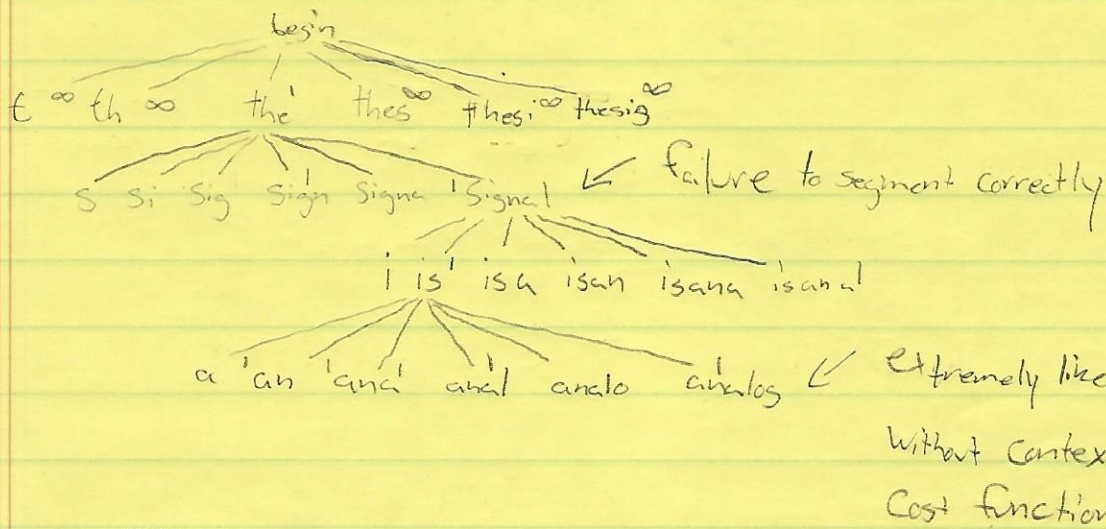 begin
t ∞ th ∞ the' thes ∞ thesi ∞ thesig ∞
s si sig sign signa 'signal ↙ failure to segment correctly
i is' isa isan isana isanal
a 'an 'ana' anal analo analog ↙ extremely like
Without Contex
Cost function